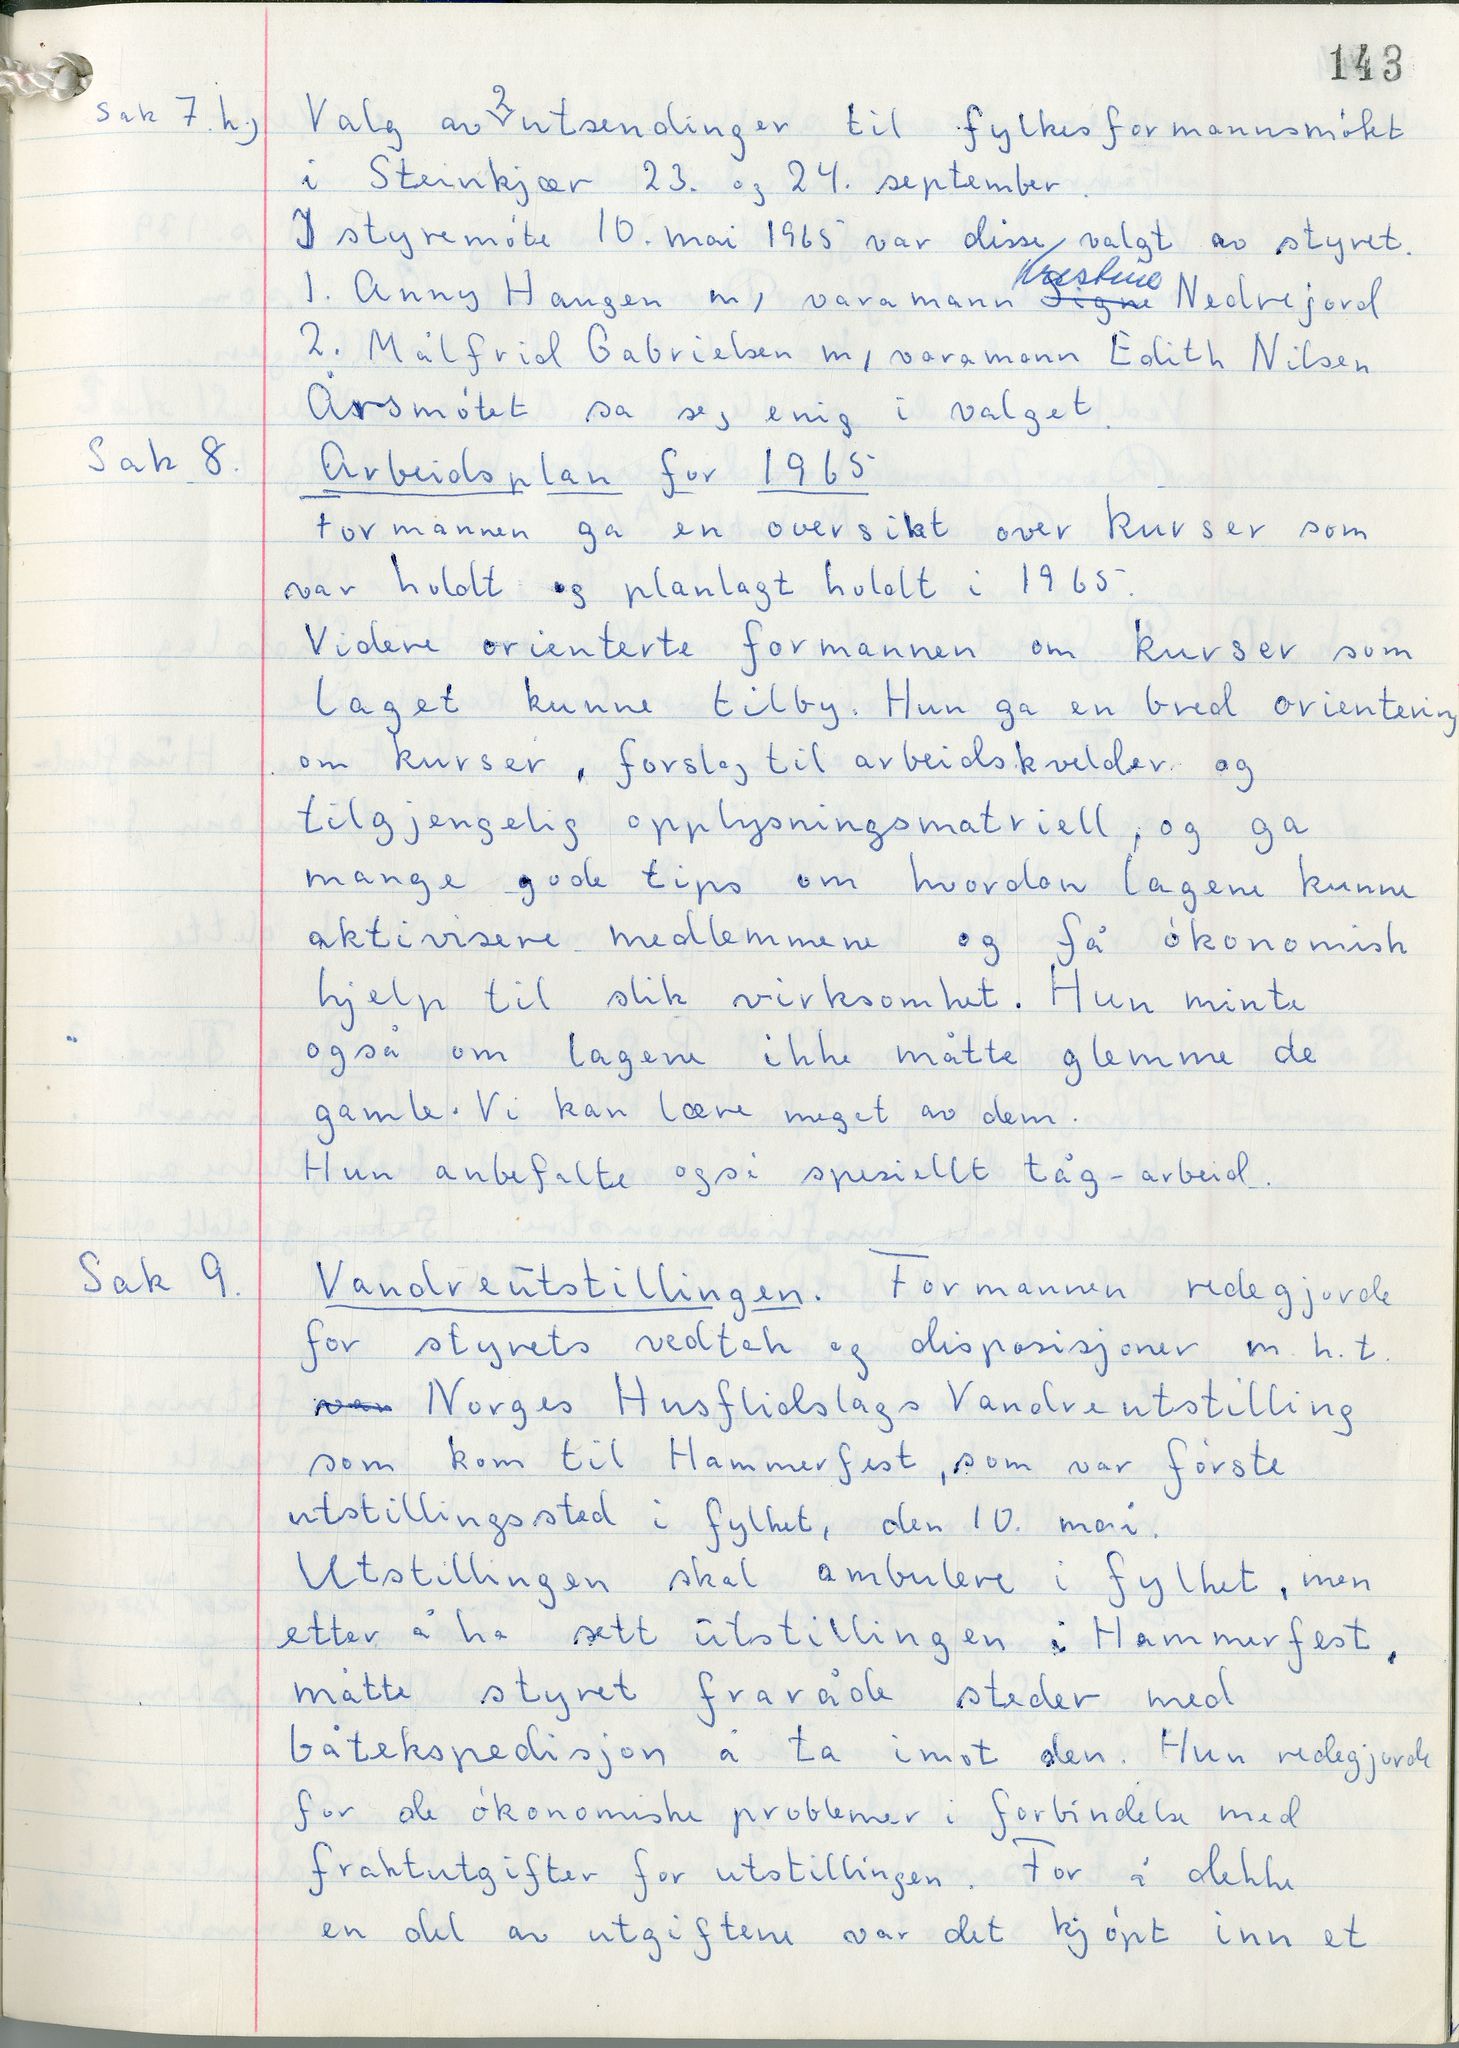 143
Sak 7. h) Valg av 2 utsendinger til fylkesformannsmötet
i Steinkjær 23. og 24. september.
I styremöte 10. mai 1965 var disse valgt av styret.
1. Anny Haugen m/ varamann Signe Kristine Nedrejord
2. Målfrid Gabrielsen m/ varamann Edith Nilsen
Årsmötet sa seg enig i valget.
Sak 8. Arbeidsplan for 1965
Formannen ga en oversikt over kurser som
var holdt og planlagt holdt i 1965.
Videre orienterte formannen om kurser som
laget kunne tilby. Hun ga en bred orientering
om kurser, forslag til arbeidskvelder og
tilgjengelig opplysningsmatriell, og ga
mange gode tips om hvordan lagene kunne
aktivisere medlemmene og få ökonomisk
hjelp til slik virksomhet. Hun minte
også om lagene ikke måtte glemme de
gamle. Vi kan lære meget av dem.
Hun anbefalte også spesiellt tåg-arbeid.
Sak 9. Vandreutstillingen. Formannen redegjorde
for styrets vedtak og disposisjoner m.h.t.
van Norges Husflidslags Vandreutstilling
som kom til Hammerfest, som var förste
utstillingssted i fylket, den 10. mai.
Utstillingen skal ambulere i fylket, men
etter å ha sett utstillingen i Hammerfest,
måtte styret fraråde steder med
båtekspedisjon å ta imot den. Hun redegjorde
for de ökonomiske problemer i forbindelse med
fraktutgifter for utstillingen. For å dekke
en del av utgiftene var det kjöpt inn et